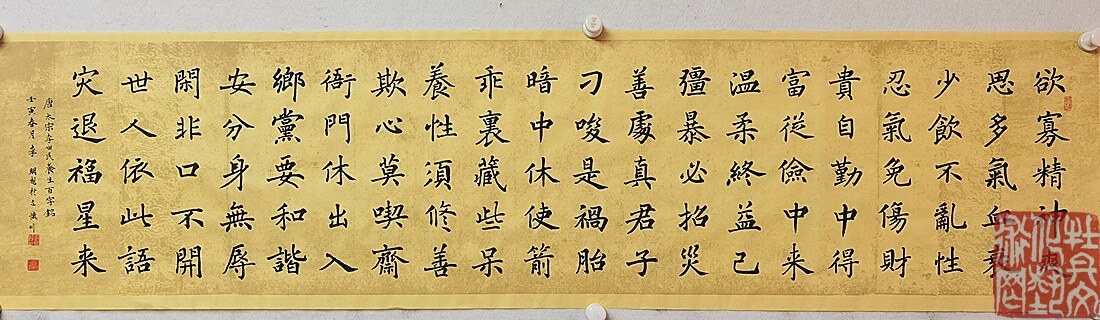 欲寡精神爽
思多氣血衰
少飲不亂性
忍氣免傷財
貴自勤中得
富從儉中来
温柔終益己
彊暴必招災
善處真君子
刁唆是禍胎
暗中休使箭
乖裏藏些呆
養性須修善
欺心莫喫齋
衙門休出入
鄉黨要和諧
安分身無辱
閑非口不開
世人依此語
灾退福星来
唐太宗李世民養生百字銘
壬寅春月李